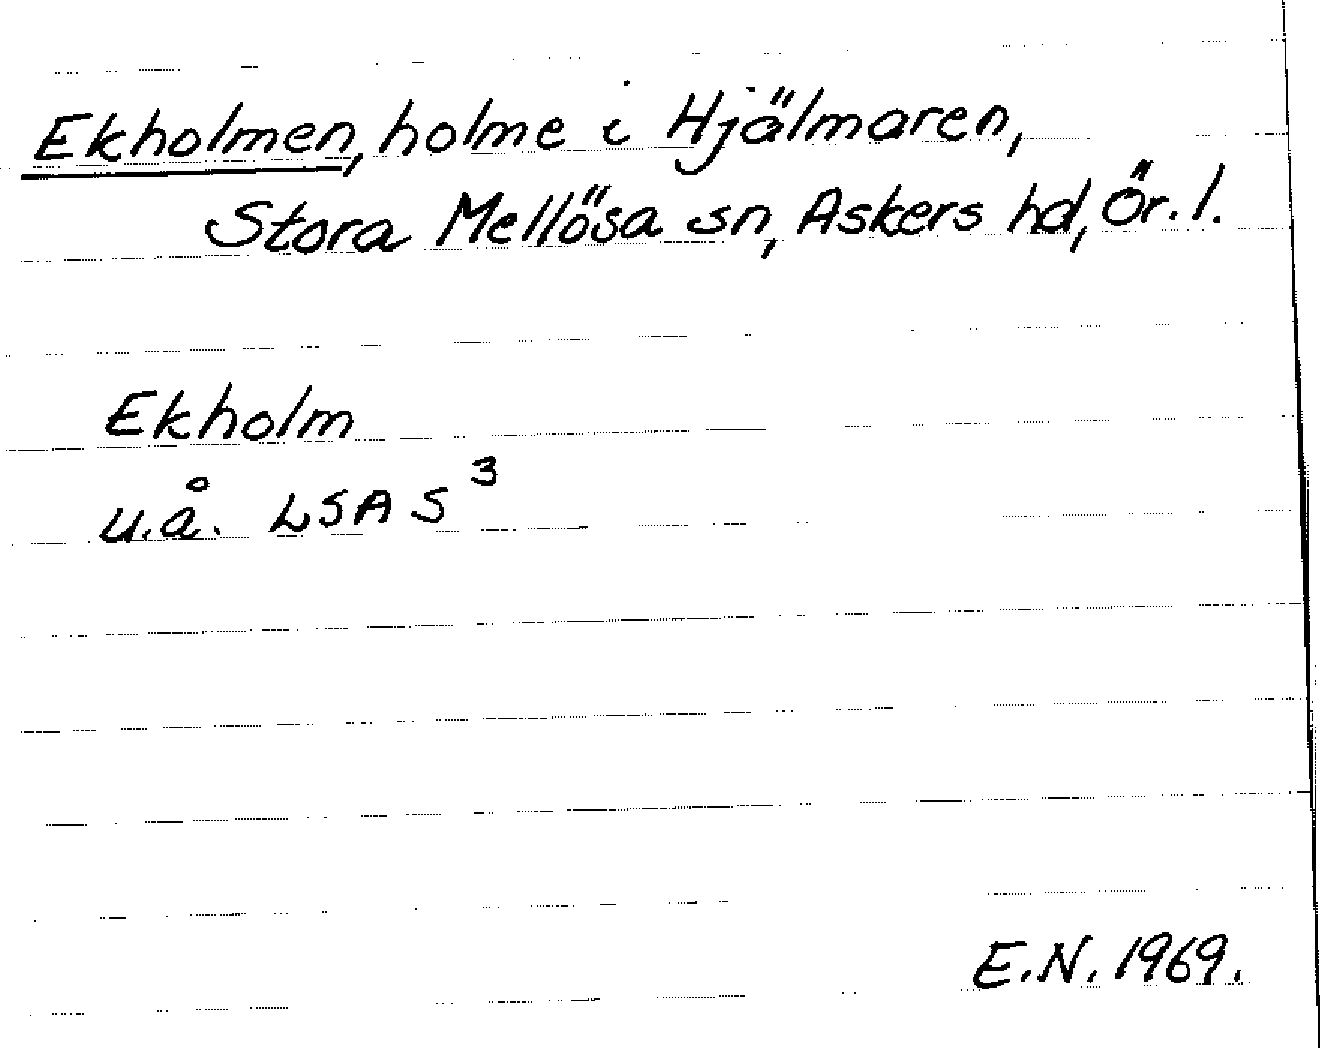 Ekholmen, holme i Hjälmaren,
Stora Mellösa sn, Askers hd, Ör. l.
Ekholm
u.å. LSA S³
E.N. 1969.